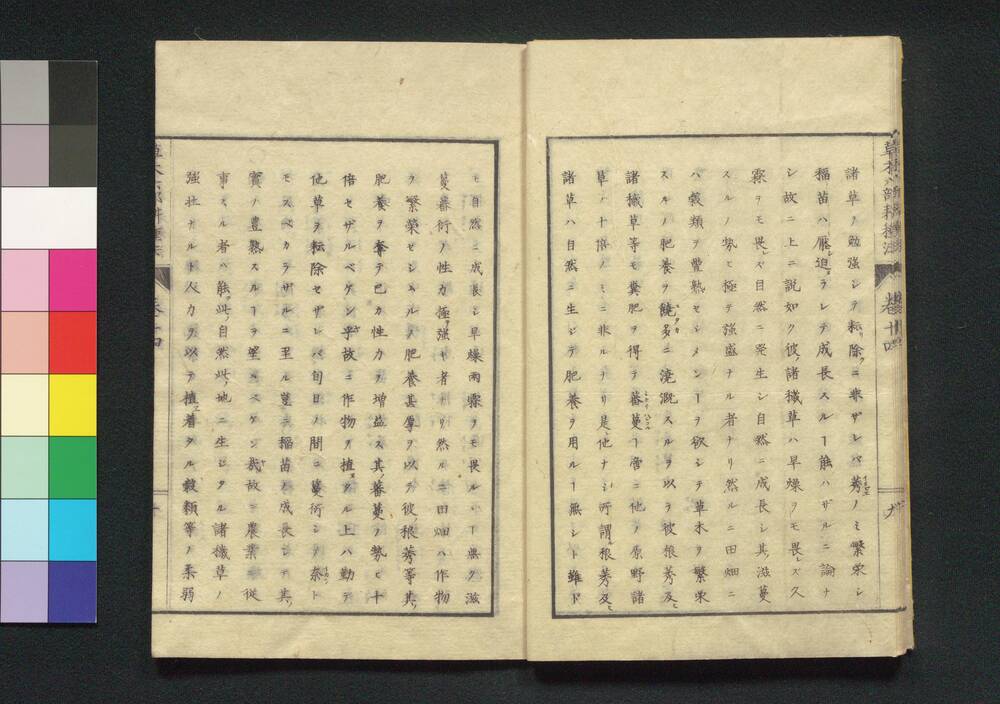 草木六部耕種法
巻十四
九
諸草ヲ勉強シテ耘除クニ非ザレバ莠ノミ繁栄シ
稲苗ハ壓迫ラレテ成長スルヿ能ハザルニ論ナ
シ故ニ上ニ説如ク彼諸穢草ハ旱燥ヲモ畏レズ久
霖ヲモ畏レズ自然ニ発生シ自然ニ成長シ其滋蔓
スルノ勢ヒ極テ強盛ナル者ナリ然ルニ田畑ニ
ハ穀類ヲ豊熟セシメンヿヲ欲シテ草木ヲ繁栄
スルノ肥養ヲ饒多ニ澆漑スルヲ以テ彼根莠及ヒ
諸穢草等モ糞肥ヲ得テ蕃蔓ヿ啻ニ他ノ原野諸
草ノ十倍ノミニ非ルナリ是他ナシ所謂ル根莠及ヒ
諸草ハ自然ニ生ジテ肥養ヲ用ルヿ無シト雖ドモ
モ自然ニ成長シ旱燥雨霖ヲモ畏ルヽヿ無ク滋
蔓蕃衍ノ性力極強キ者ナリ然ルニ田畑ハ作物
ヲ繁栄セシムルノ肥養甚厚ヲ以テ彼根莠等其
肥養ヲ奪テ己カ性力ヲ増益ス其蕃蔓ノ勢ヒ十
倍セザルベケンヤ故ニ作物ヲ植タル上ハ勤テ
他草ヲ耘除セザレバ旬日ノ間ニ蔓衍シテ奈ト
モスベカラザルニ至ル豈ニ稲苗ノ成長シテ其
實ノ豊熟スルヿヲ望ムベケンヤ哉故ニ農業ニ従
事スル者ハ能此自然此地ニ生ジタル諸穢草ノ
強壮ナルト人力ヲ以テ植着タル穀類等ノ柔弱
草木六部耕種法
巻十四